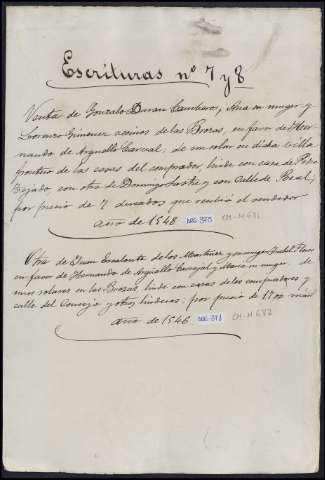 Escrituras nº 7 y 8
Venta de Gonzalo Duran Cantero, Ana su muger y
Lorenzo Gimenez vecinos de las Brozas, en favor de Her-
nando de Arguello Carvajal, de un solar en dicha Villa
frontero de las casas del comprador, linde con casa de Pedro
Tejado, con otra de Domingo y con Calle de Real;
por precio de 7 ducados que recibió el vendedor
año de 1548 DOC-373 CM-M 681
Otra de Juan de los Martinez y su muger
en favor de Hernando de Arguello Carvajal y Maria su muger, de
unos solares en las Brozas, linde con casas de los compradores y
calle del Concejo y otros linderos; por precio de 1700 mrs
año de 1546 DOC-373 CM-M 682